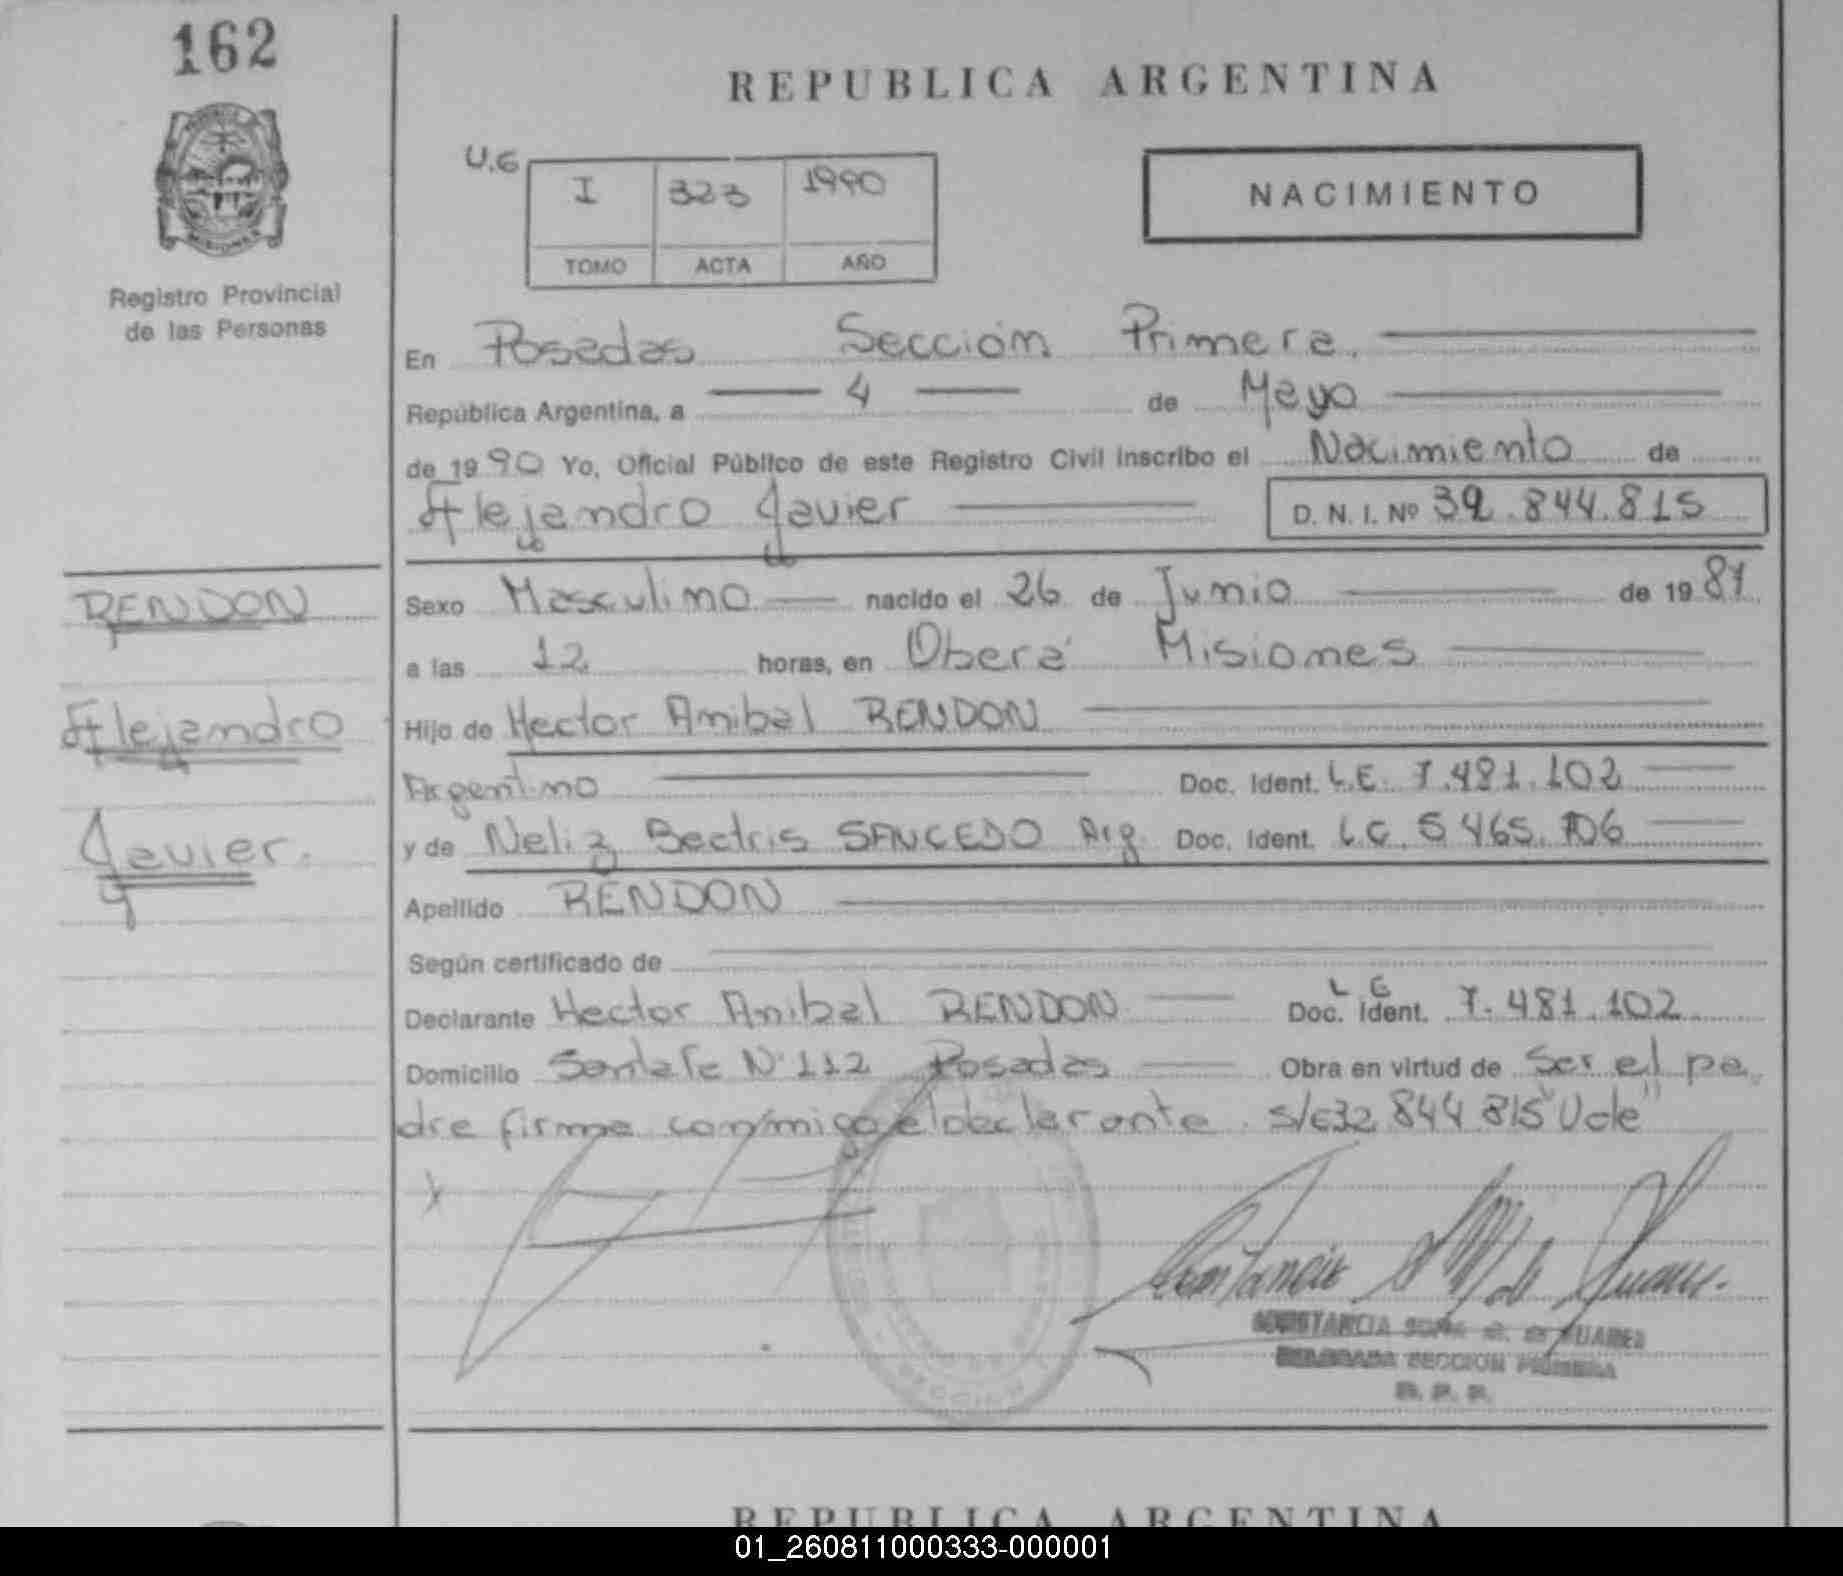 162
REPUBLICA ARGENTINA
U.G
I 323 1990
TOMO ACTA AÑO
NACIMIENTO
MISIONES
Registro Provincial
de las Personas
En Posadas Sección Primera.
República Argentina, a 4 de Mayo
de 1990 Yo, Oficial Público de este Registro Civil inscribo el Nacimiento de
Alejandro Javier D. N. I. Nº 32.844.815
RENDON
Alejandro
Javier.
Sexo Masculino nacido el 26 de Junio de 1987
a las 12 horas, en Oberá Misiones
Hijo de Hector Anibal RENDON
Argentino Doc. Ident. L.E. 7.481.102
y de Beatris SAUCEDO Arg. Doc. Ident. L.C. 5465.706
Apellido RENDON
Según certificado de
Declarante Hector Anibal RENDON Doc. Ident. L E 7.481.102
Domicilio Santa Fe Nº 112 Posadas Obra en virtud de Ser el pa
dre firma conmigo el declarante. 844 815 "Vale"
CONSTANCIA SOFIA DE SUAREZ
SECCION PRIMERA
R. P. P.
REPUBLICA ARGENTINA
01_260811000333-000001